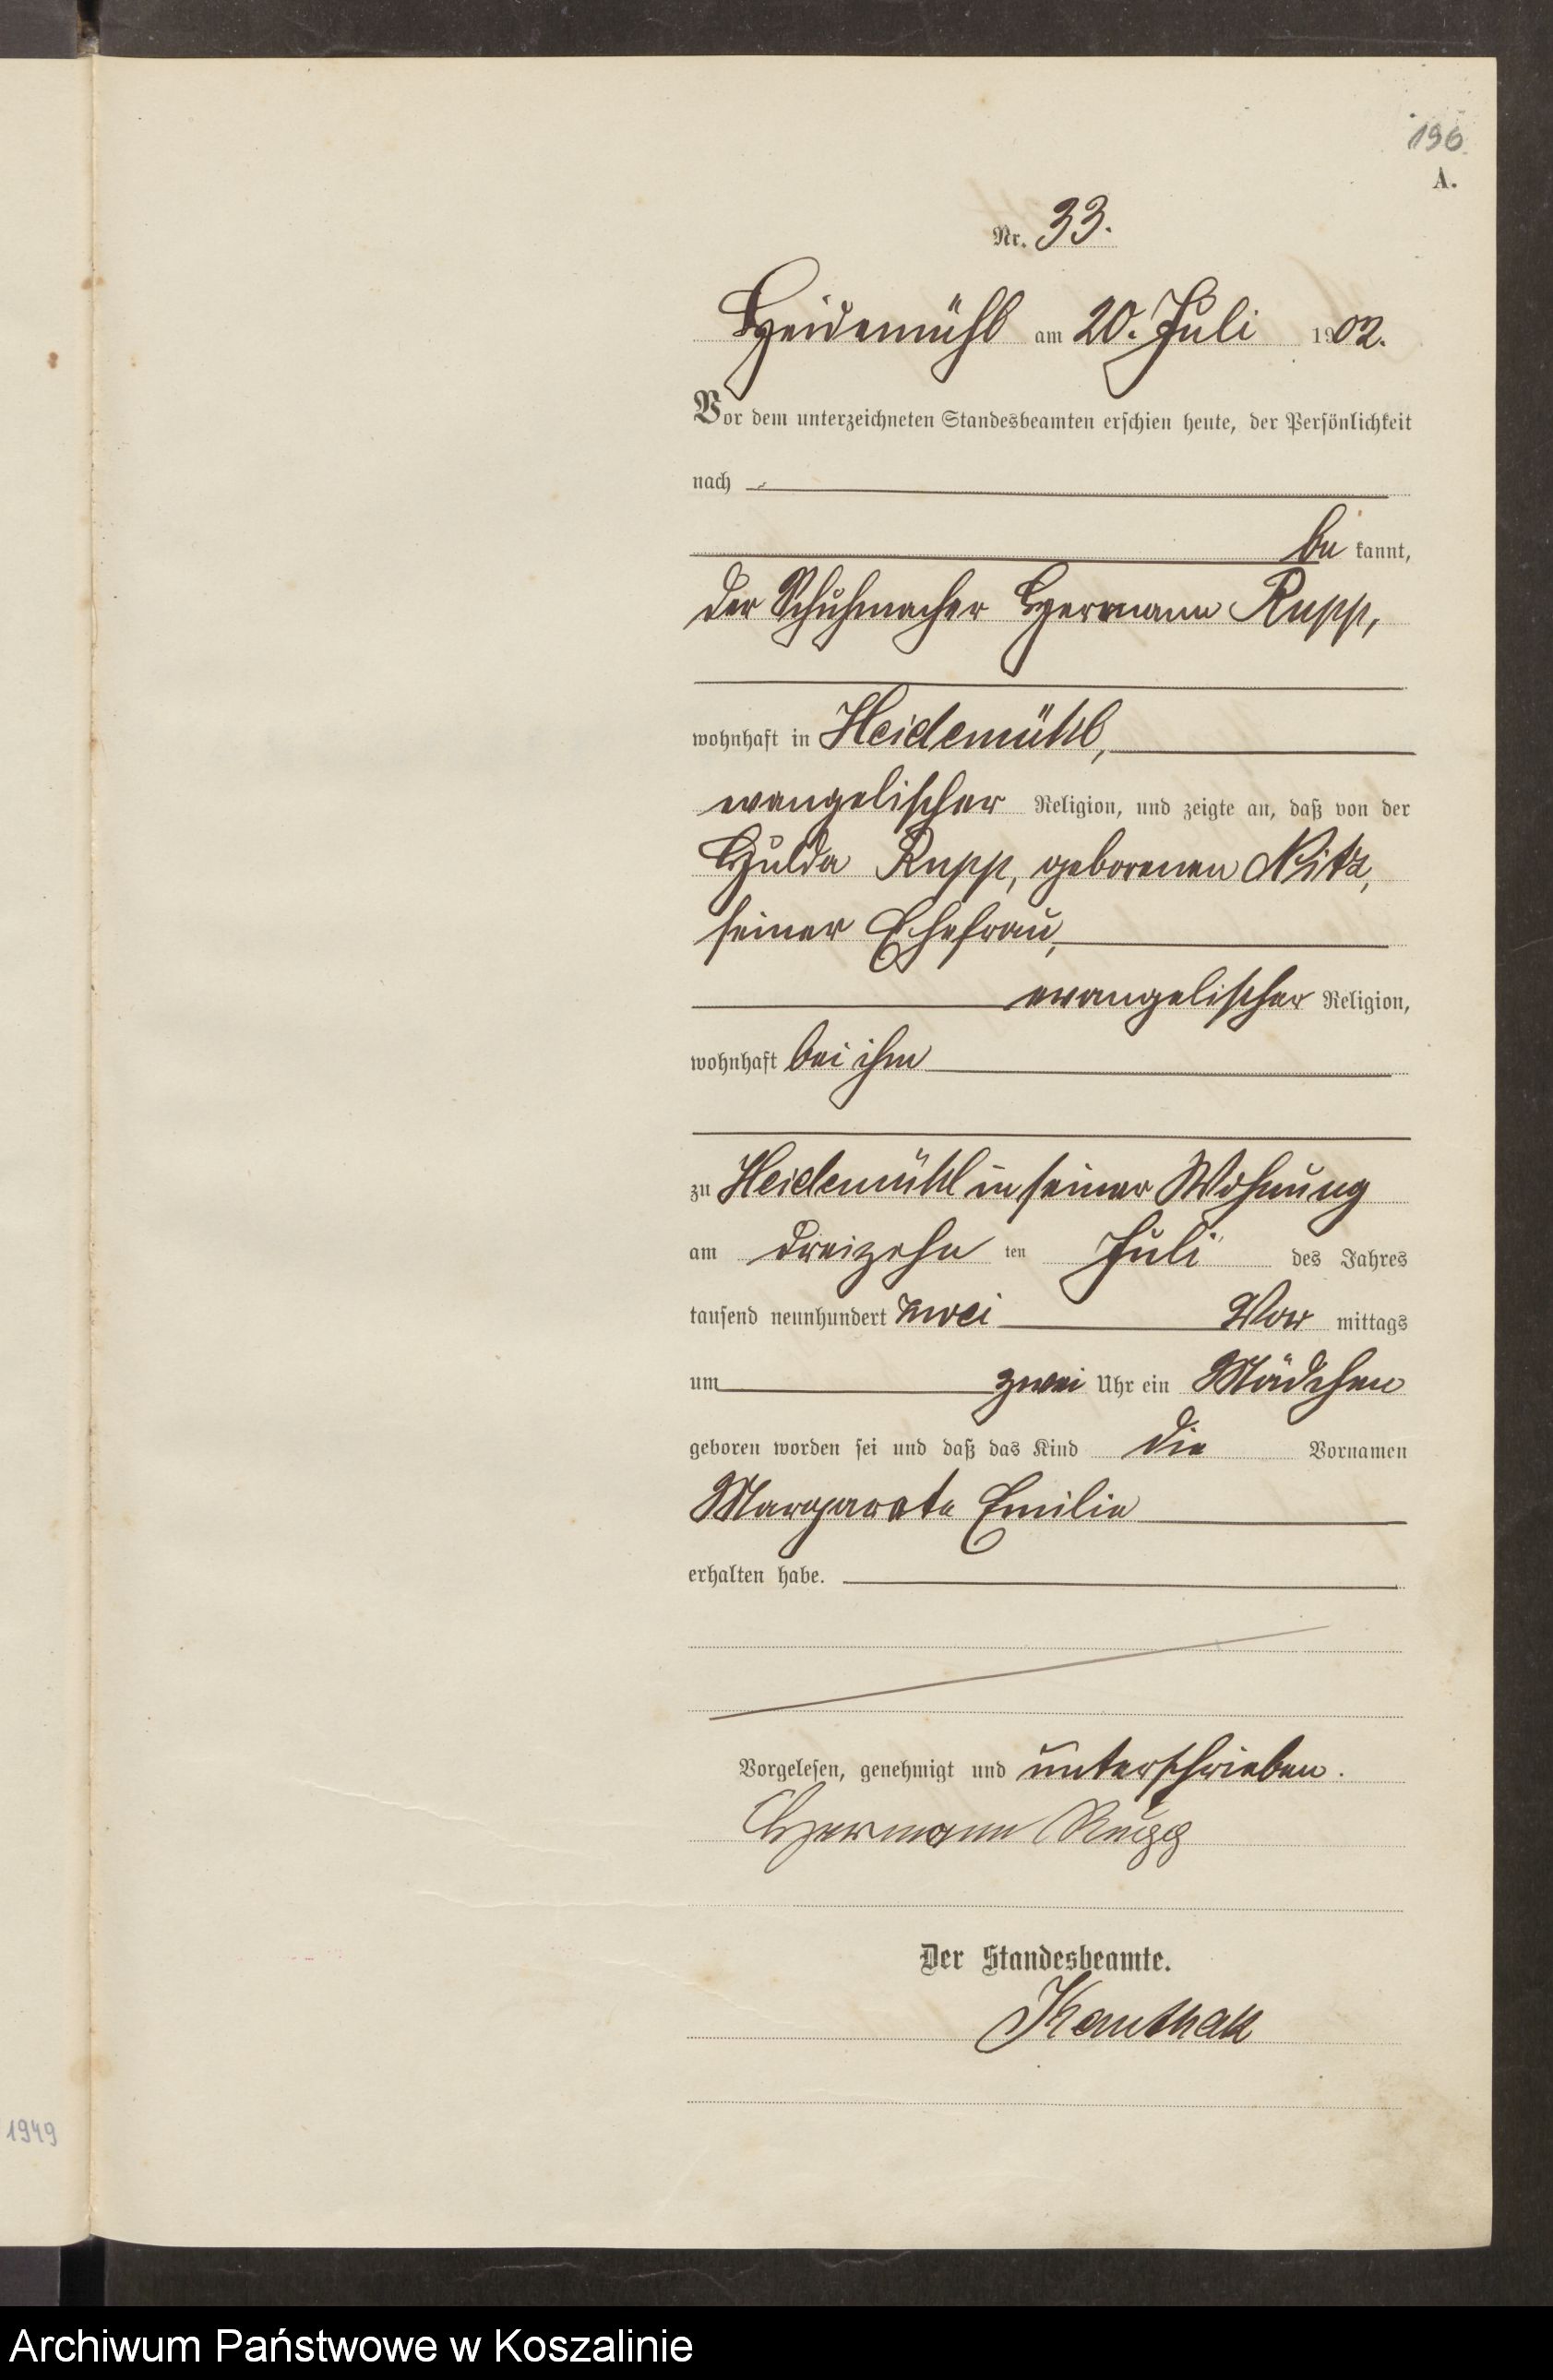 196
A.
Nr. 33.
Heidemühl am 20. Juli 1902.
Vor dem unterzeichneten Standesbeamten erschien heute, der Persönlichkeit
nach
be kannt,
der Schuhmacher Hermann Rupp,
wohnhaft in Heidemühl,
evangelischer Religion, und zeigte an, daß von der
Hulda Rupp, geborenen Nitz,
seiner Ehefrau,
evangelischer Religion,
wohnhaft bei ihm
zu Heidemühl in seiner Wohnung
am dreizehn ten Juli des Jahres
tausend neunhundert zwei Vor mittags
um zwei Uhr ein Mädchen
geboren worden sei und daß das Kind die Vornamen
Margarete Emilie
erhalten habe.
Vorgelesen, genehmigt und unterschrieben.
Hermann Rupp
Der Standesbeamte.
Kauthak
1949
Archiwum Państwowe w Koszalinie